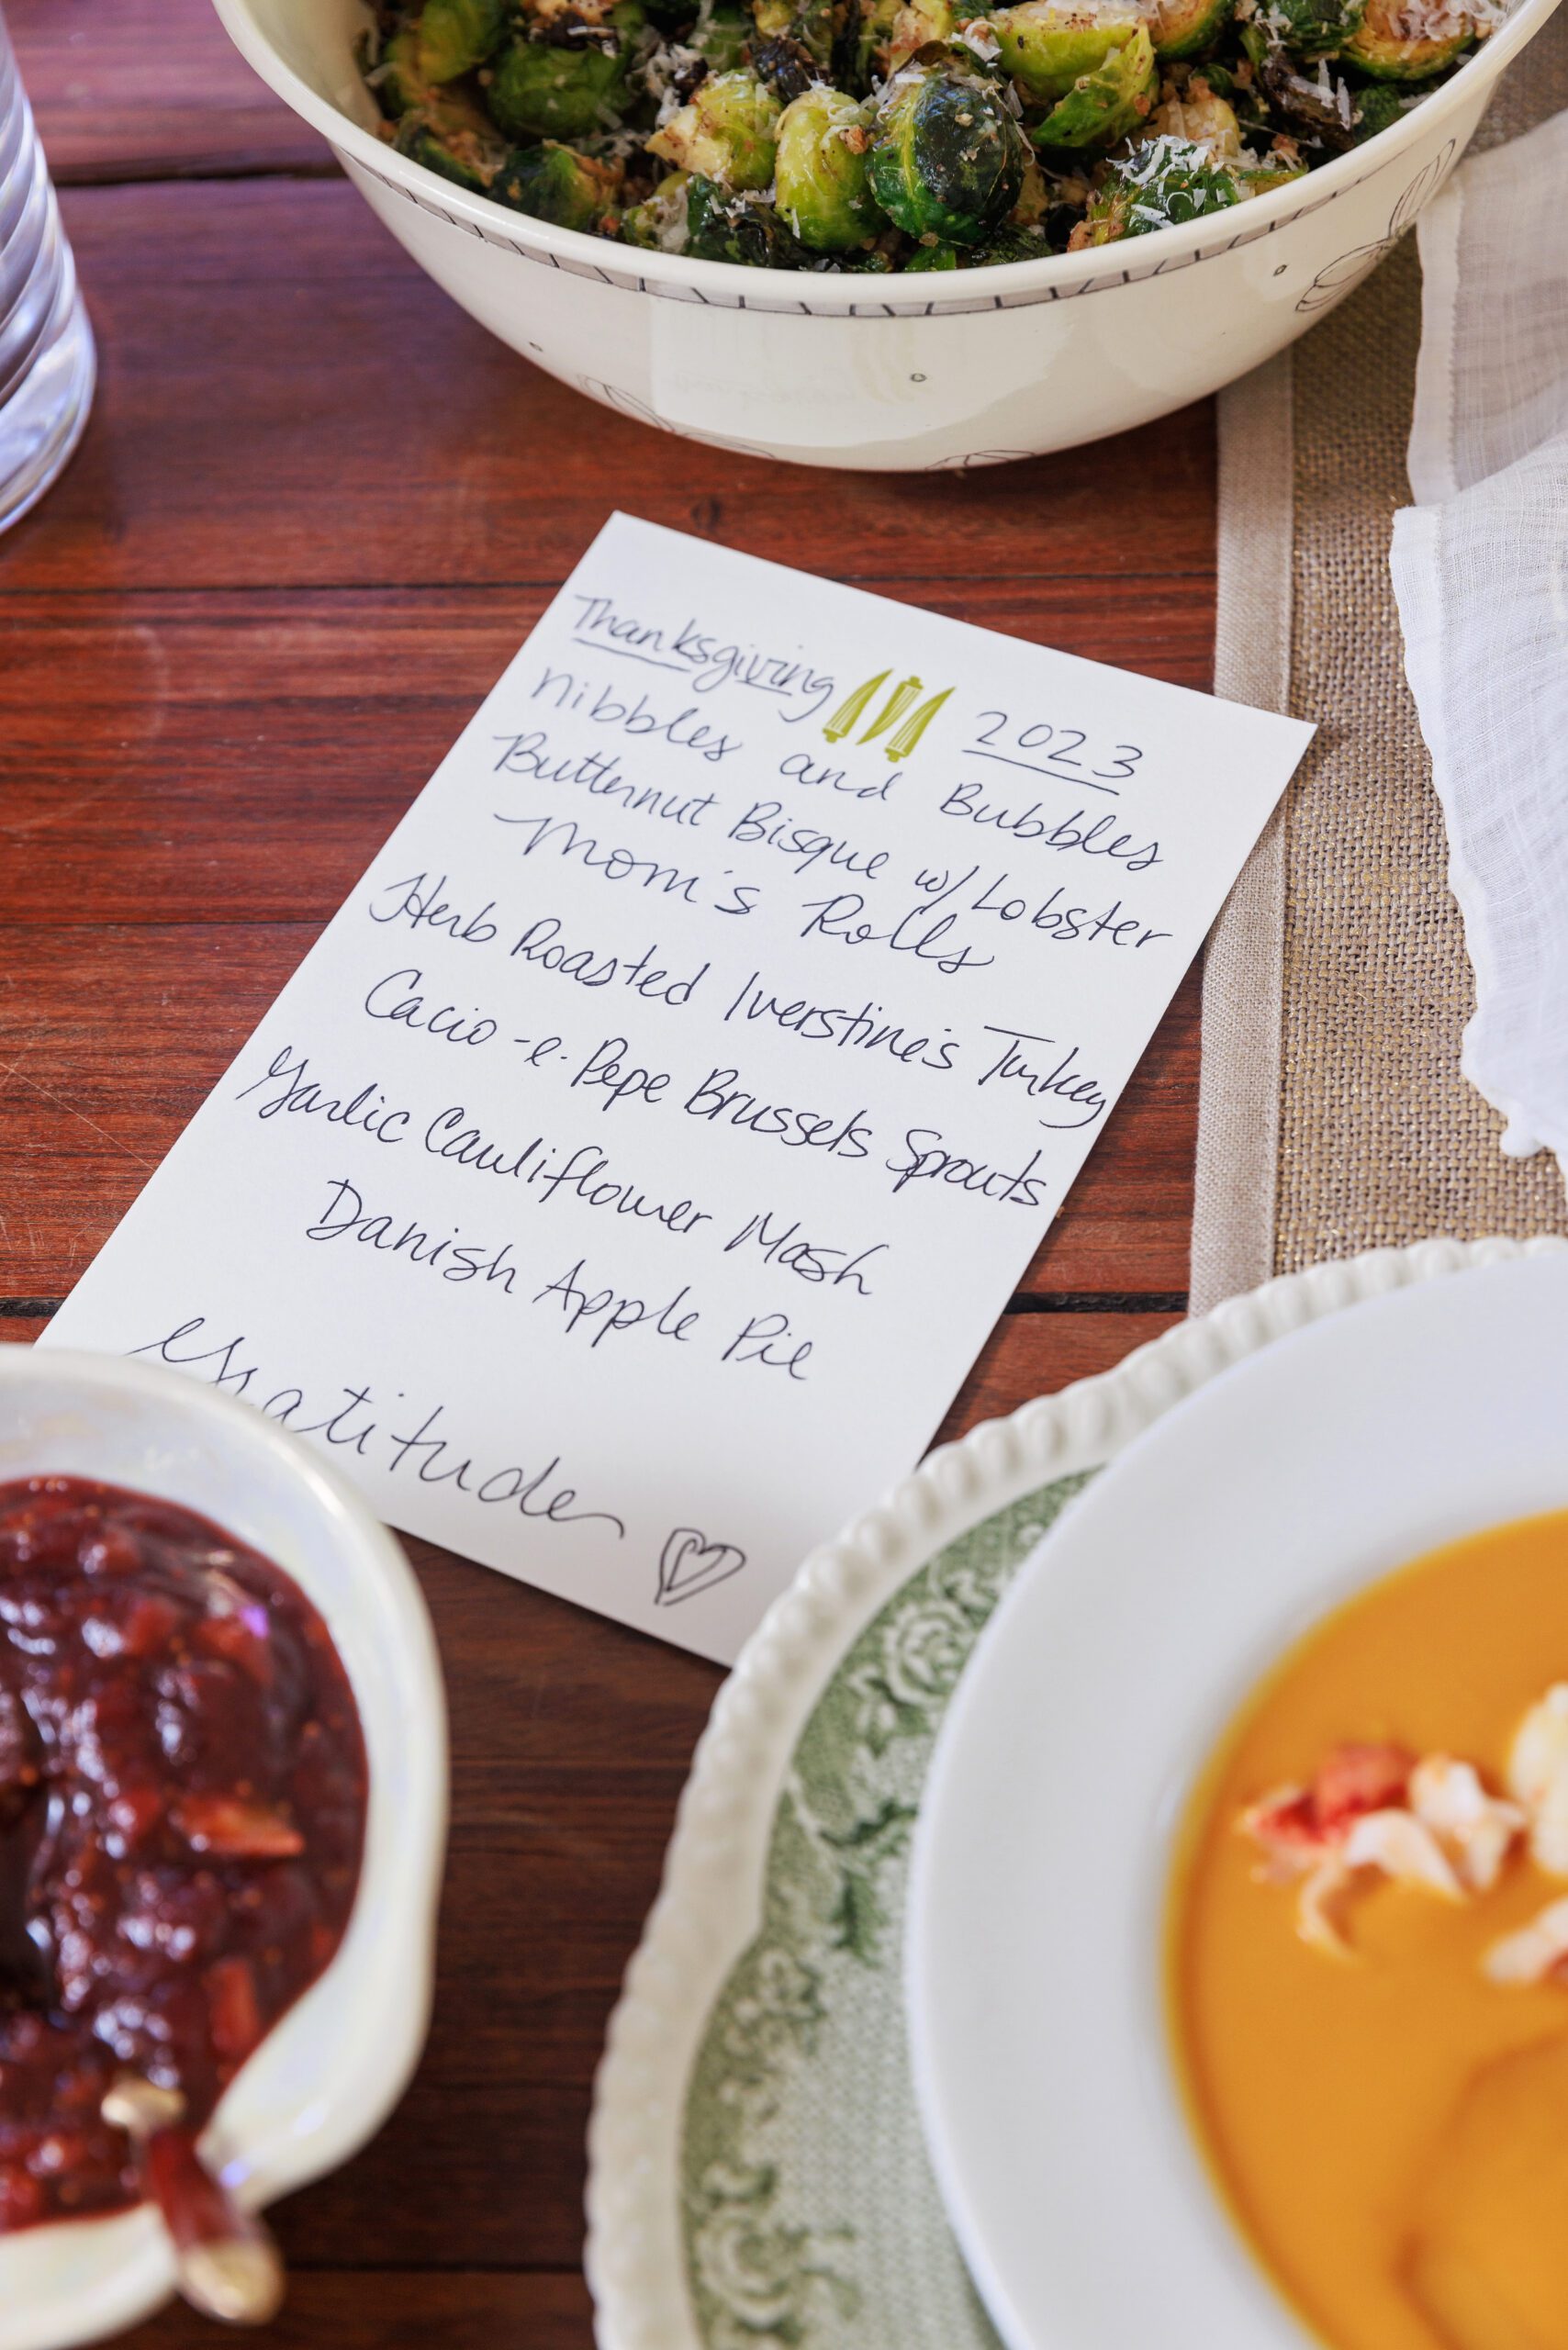 Thanksgiving 2023
Nibbles and Bubbles
Butternut Bisque w/ Lobster
Mom's Rolls
Herb Roasted Iverstine's Turkey
Cacio-e-Pepe Brussels Sprouts
Garlic Cauliflower Mash
Danish Apple Pie
Gratitude